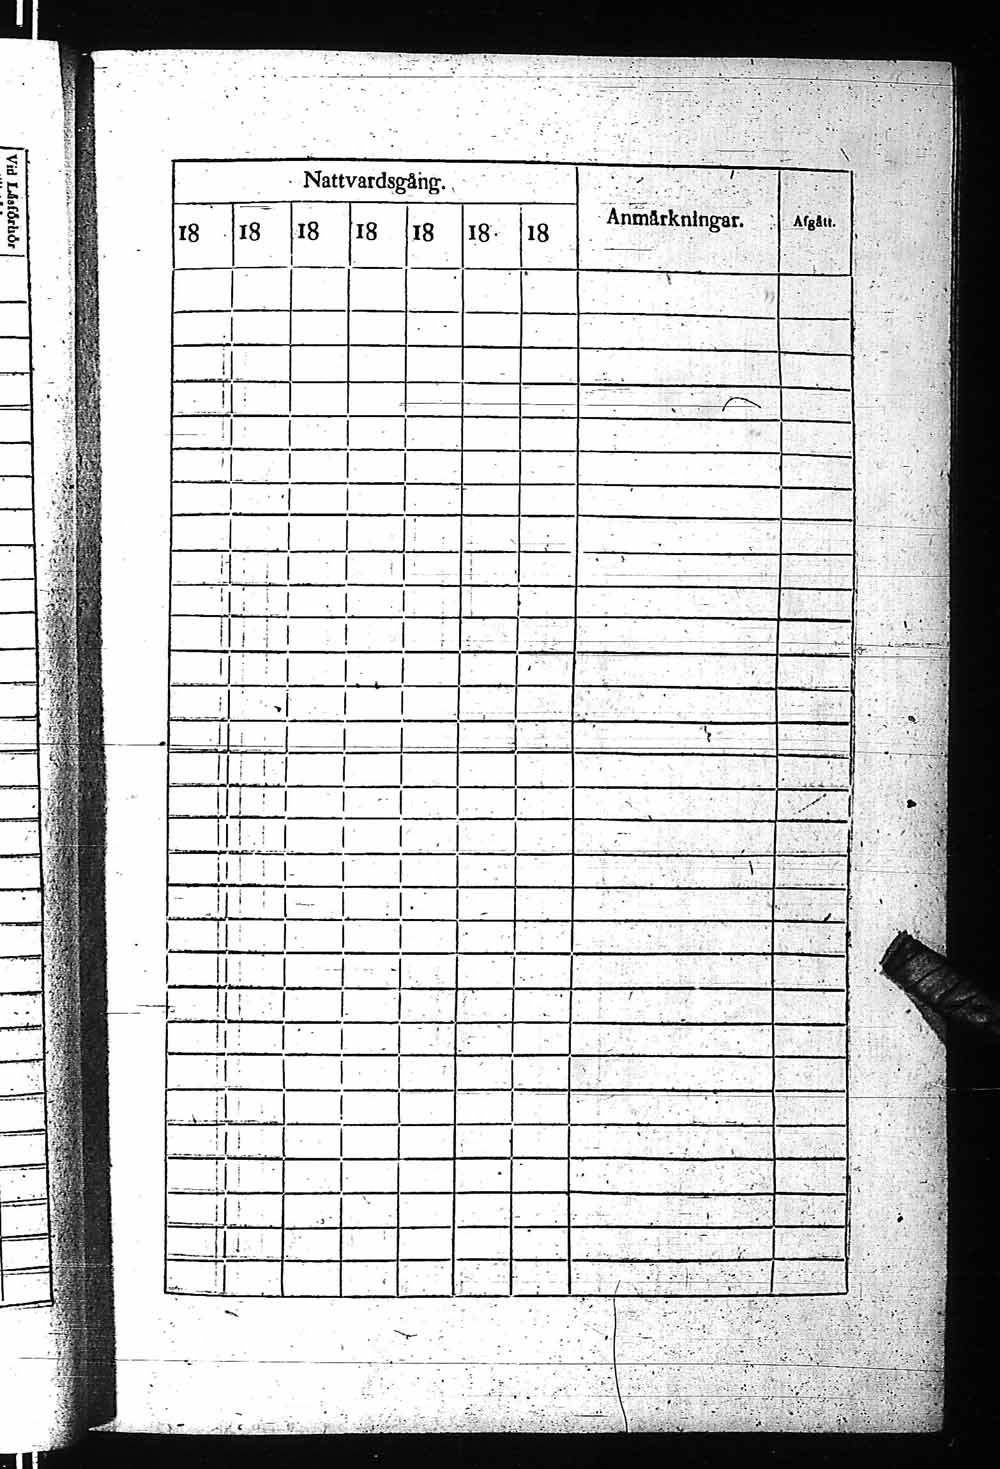 Vid Läsförhör
Nattvardsgång.
18 18 18 18 18 18 18
Anmärkningar.
Afgått.